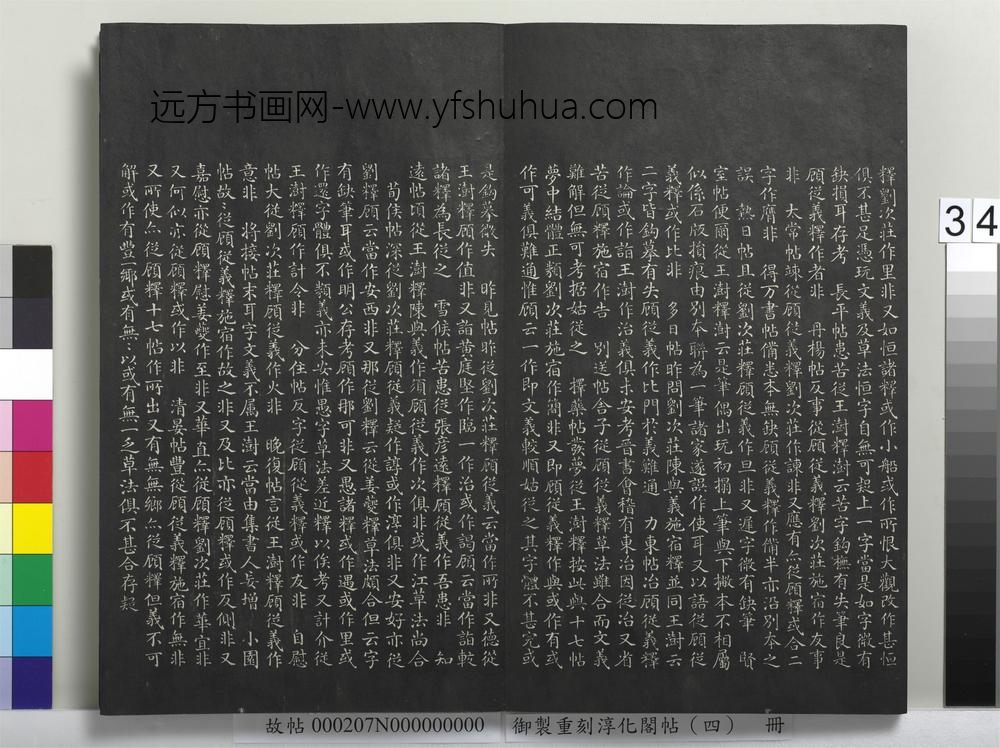 远方书画网-www.yfshuhua.com
釋劉次莊作里非又如恒諸釋或作小船或作所恨大觀改作甚恒
俱不甚足憑玩文義及草法恒字自無可疑上一字當是如字微有
缺損耳存考 長平帖患苦從王澍釋澍云苦字鈎橅有失筆良是
顧從義釋作者非 丹楊帖反事從顧從義釋劉次莊施宿作友事
非 太常帖竦從顧從義釋劉次莊作諫非又應有亦從顧釋或合二
字作膺非 得万書帖備悉本無缺顧從義釋作備半亦沿別本之
誤 熱日帖且從劉次莊釋顧從義作旦非又遲字微有缺筆 賢
室帖使爾從王澍釋澍云是筆偶出玩初搨上筆與下撇本不相屬
似係石版損痕由別本聯為一筆諸家遂誤作使耳又以語從顧從
義釋或作比非 多日帖昨問劉次莊陳與義施宿釋並同王澍云
二字皆鈎摹有失顧從義作比門於義難通 力東帖治顧從義釋
作論或作詣王澍作治義俱未安考晉書會稽有東治因從治又省
苦從顧釋施宿作告 別送帖合子從顧從義釋草法雖合而文義
難解但無可考据姑從之 擇藥帖亥夢從王澍釋按此與十七帖
夢中結體正類劉次莊施宿作簡非又即顧從義釋作與或作有或
作可義俱難通惟顧云一作即文義較順姑從之其字體不甚完或
是鈎摹微失 昨見帖昨從劉次莊釋顧從義云當作所非又德從
王澍釋顧作值非又詣黄庭堅作臨一作治或作謁顧云當作詣較
諸釋為長從之 雪候帖苦患從張彦遠釋顧從義作吾患非 知
遠帖頃從王澍釋陳與義作須顧從義作次俱非或作江草法尚合
荀侯帖深從劉次莊釋顧從義疑作諄或作淳俱非又安好亦從
劉釋顧云當作安西非又那從劉釋云從姜夔釋草法頗合但云字
有缺筆耳或作明公存考顧作那可非又愚諸釋或作遇或作里或
作還字體俱不類義亦未安惟愚字草法差近釋以俟考又計介從
王澍釋顧作計令非 分住帖反字從顧從義釋或作友非 自慰
帖大從劉次莊釋顧從義作火非 晚復帖言從王澍釋顧從義作
意非 將接帖末耳字文義不屬王澍云當由集書人妄增 小園
帖故一從顧從義釋施宿作故之非又及比亦從顧釋或作反側非又
嘉慰亦從顧釋慰姜夔作至非又華直亦從顧釋劉次莊作華宜非
又何似亦從顧釋或作以非 清晏帖豐從顧從義釋施宿作無非
又所使亦從顧釋十七帖作所出又有無無鄉亦從顧釋但義不可
解或作有豐鄉或有無以或有無一之草法俱不甚合存疑
故帖 000207N000000000 御製重刻淳化閣帖（四） 冊
34